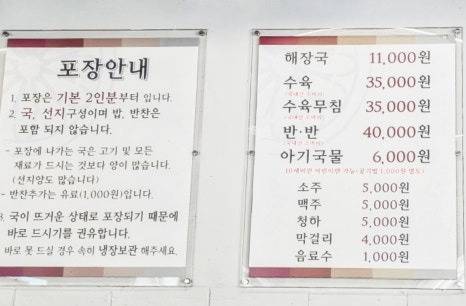 포장안내
1. 포장은 기본 2인분부터 입니다.
2. 국, 선지구성이며 밥, 반찬은
포함 되지 않습니다.
- 포장에 나가는 국은 고기 및 모든
재료가 드시는 것보다 양이 많습니다.
(선지양도 많습니다)
- 반찬추가는 유료(1,000원)입니다.
3. 국이 뜨거운 상태로 포장되기 때문에
바로 드시기를 권유합니다.
바로 못 드실 경우 속히 냉장보관 해주세요.
해장국 11,000원
수육 35,000원
수육무침 35,000원
반·반 40,000원
아기국물 6,000원
소주 5,000원
맥주 5,000원
청하 5,000원
막걸리 4,000원
음료수 1,000원